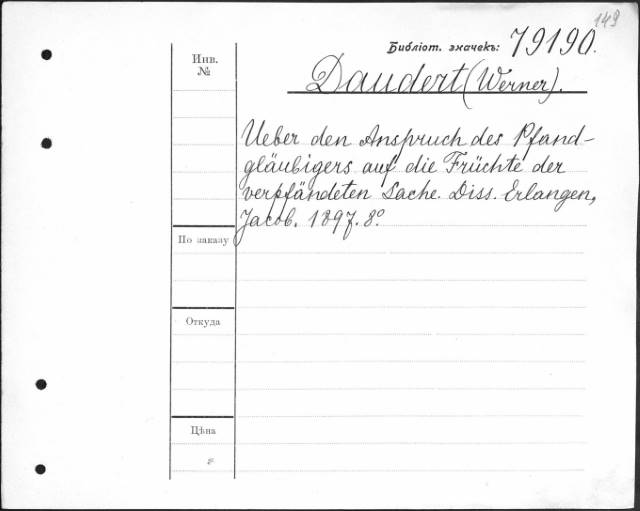 149
Библіот. значекъ: 79190.
Инв.
№
Daudert (Werner).
Ueber den Anspruch des Pfand-
gläubigers auf die Früchte der
verpfändeten Sache. Diss. Erlangen,
Jacob. 1897. 8º.
По заказу
Откуда
Цѣна